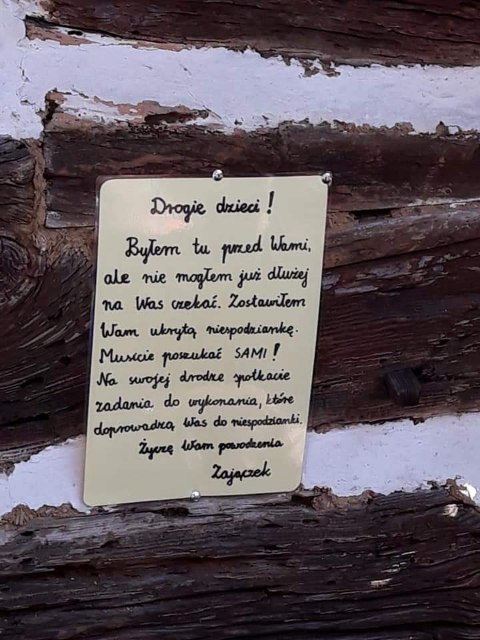 Drogie dzieci!
Byłem tu przed Wami,
ale nie mogłem już dłużej
na Was czekać. Zostawiłem
Wam ukrytą niespodziankę.
Musicie poszukać SAMI!
Na swojej drodze spotkacie
zadania do wykonania, które
doprowadzą Was do niespodzianki.
Życzę Wam powodzenia
Zajączek